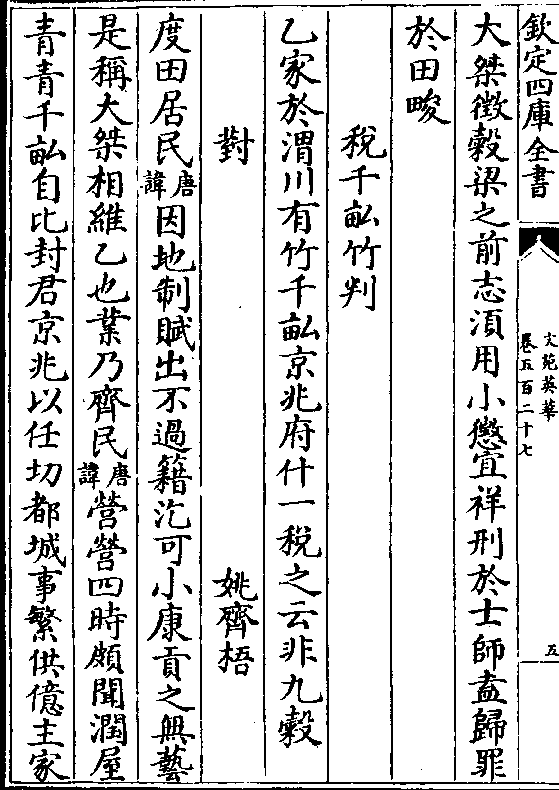 欽定四庫全書
文苑英華
卷五百二十七
五
大桀徴糓梁之前志湏用小懲宜祥刑於士師盍歸罪
於田畯
稅千畝竹判
乙家於渭川有竹千畝京兆府什一稅之云非九糓
對
姚齊梧
度田居民唐諱因地制賦出不過籍汔可小康貢之無藝
是稱大桀相維乙也業乃齊民唐諱營營四時頗聞潤屋
青青千畝自比封君京兆以任切都城事繁供億主家